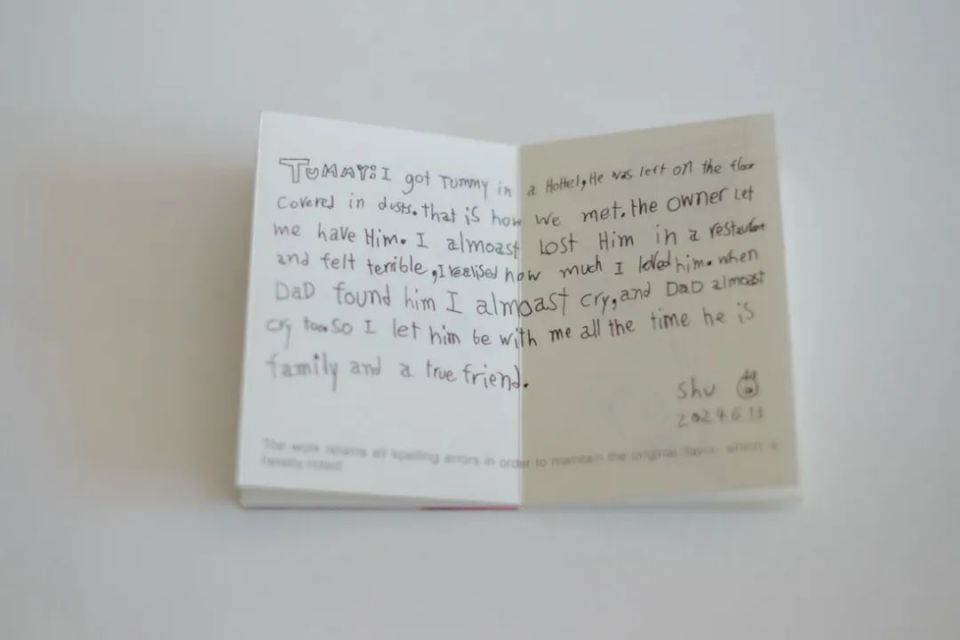 TUMMY: I got Tummy in a Hottel, He was left on the floor
Covered in dusts. that is how we met. the owner Let
me have Him. I almoast Lost Him in a restaurant
and felt terrible, I realised how much I loved him. when
DaD found him I almoast cry, and DaD almoast
cry too. So I let him be with me all the time he is
family and a true friend.
Shu
2024 6 13
The work retains all spelling errors in order to maintain the original flavor, which is
hereby noted